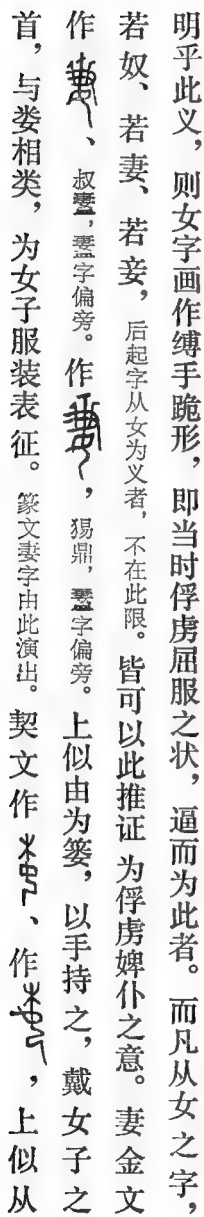 明乎此义，则女字画作缚手跪形，即当时俘虏屈服之状，逼而为此者。而凡从女之字，
若奴、若妻、若妾，后起字从女为义者，不在此限。皆可以此推证为俘虏婢仆之意。妻金文
作、叔，字偏旁。作，猲鼎，字偏旁。上似由为篓，以手持之，戴女子之
首，与娄相类，为女子服装表征。篆文妻字由此演出。契文作、作，上似从